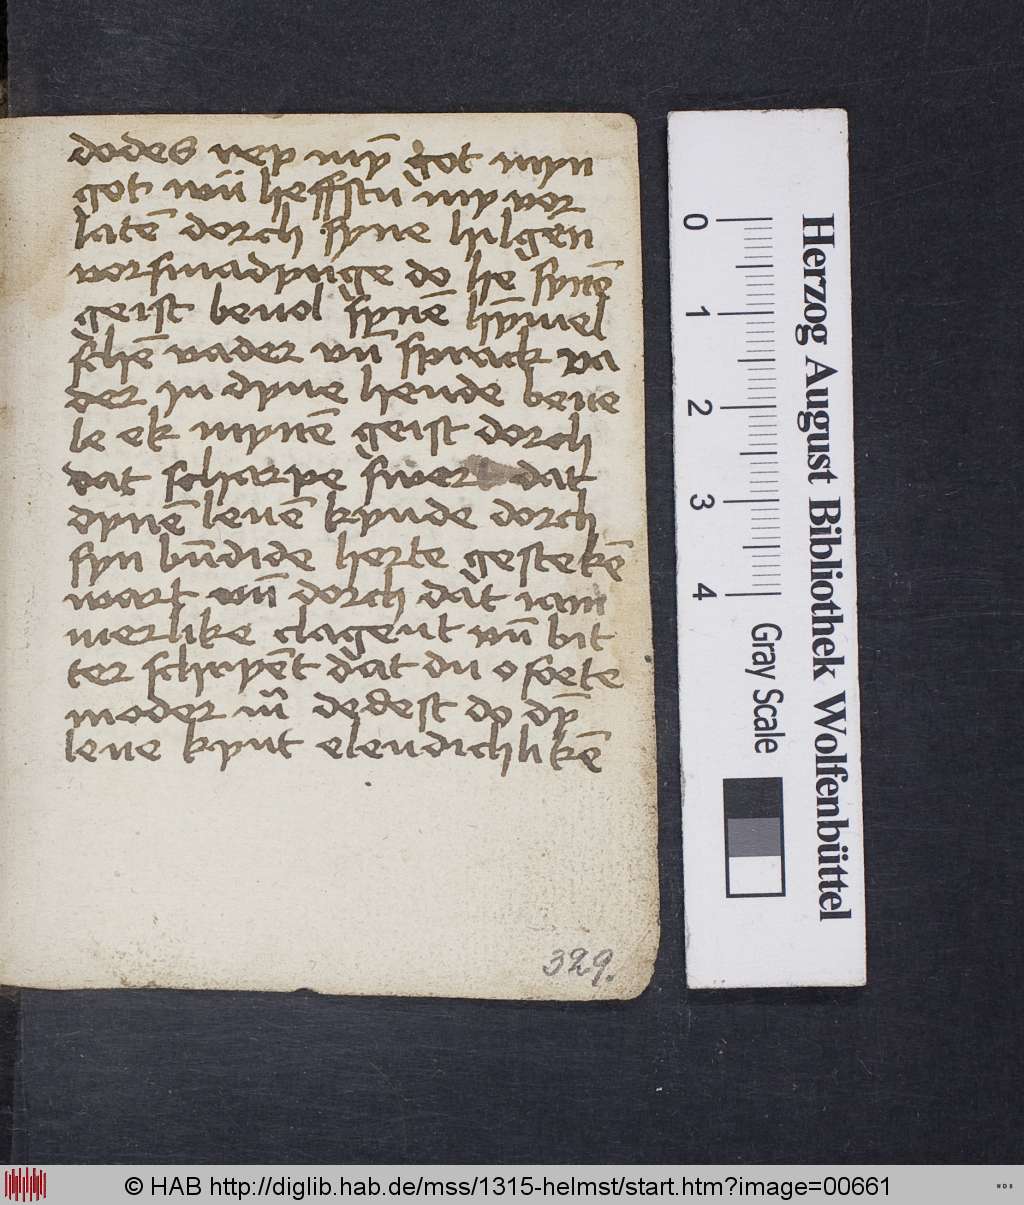 dodes rep mȳ got myn
got wū heffstu my vor
latē dorch syne hilgen
vorsmadynge do he synē
geist beuol synē hȳmel
schē vader vn̄ sprack va
der in dyne hende beue
le ek mynē geist dorch
dat scharpe swer dat
dynē leuē kynde dorch
syn bēdide herte gestekē
wart vn̄ dorch dat iam
merlike clagent vn̄ bit
ter schryēt dat du o soete
moder m̄ dedest do dȳ
leue kynt elendichlikē
329.
Herzog August Bibliothek Wolfenbüttel
0 1 2 3 4
Gray Scale
© HAB http://diglib.hab.de/mss/1315-helmst/start.htm?image=00661